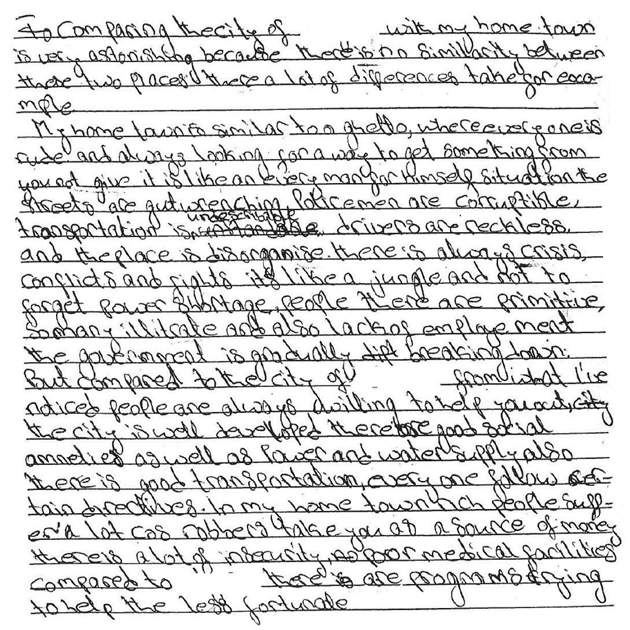 To Comparing the city of with my home town
is very astonishing because there is no simillarity between
these two places there a lot of differences take for exca-
mple
My home town is similar to a ghetto, where every one is
rude and always looking for a way to get something from
you not give it is like an every man for himself situation the
streets are gutwrenching, Policemen are corruptible,
transportation is undescribable, drivers are reckless,
and the place is disorganise. there is always crisis,
conflicts and fights it's like a jungle and not to
forget Power shortage, people there are primitive,
so many illitrate and also lack of employe ment
the government is gradually breaking down.
But compared to the city of from what I've
noticed people are always willing to help you out,
the city is well developed there are good social
amneties as well as Power and water supply also
there is good transportation, every one follow cer-
tain directives. In my home town rich people suff-
er a lot cos robbers take you as a source of money
there is a lot of insecurity, poor medical facilities
compared to there are programs trying
to help the less fortunate